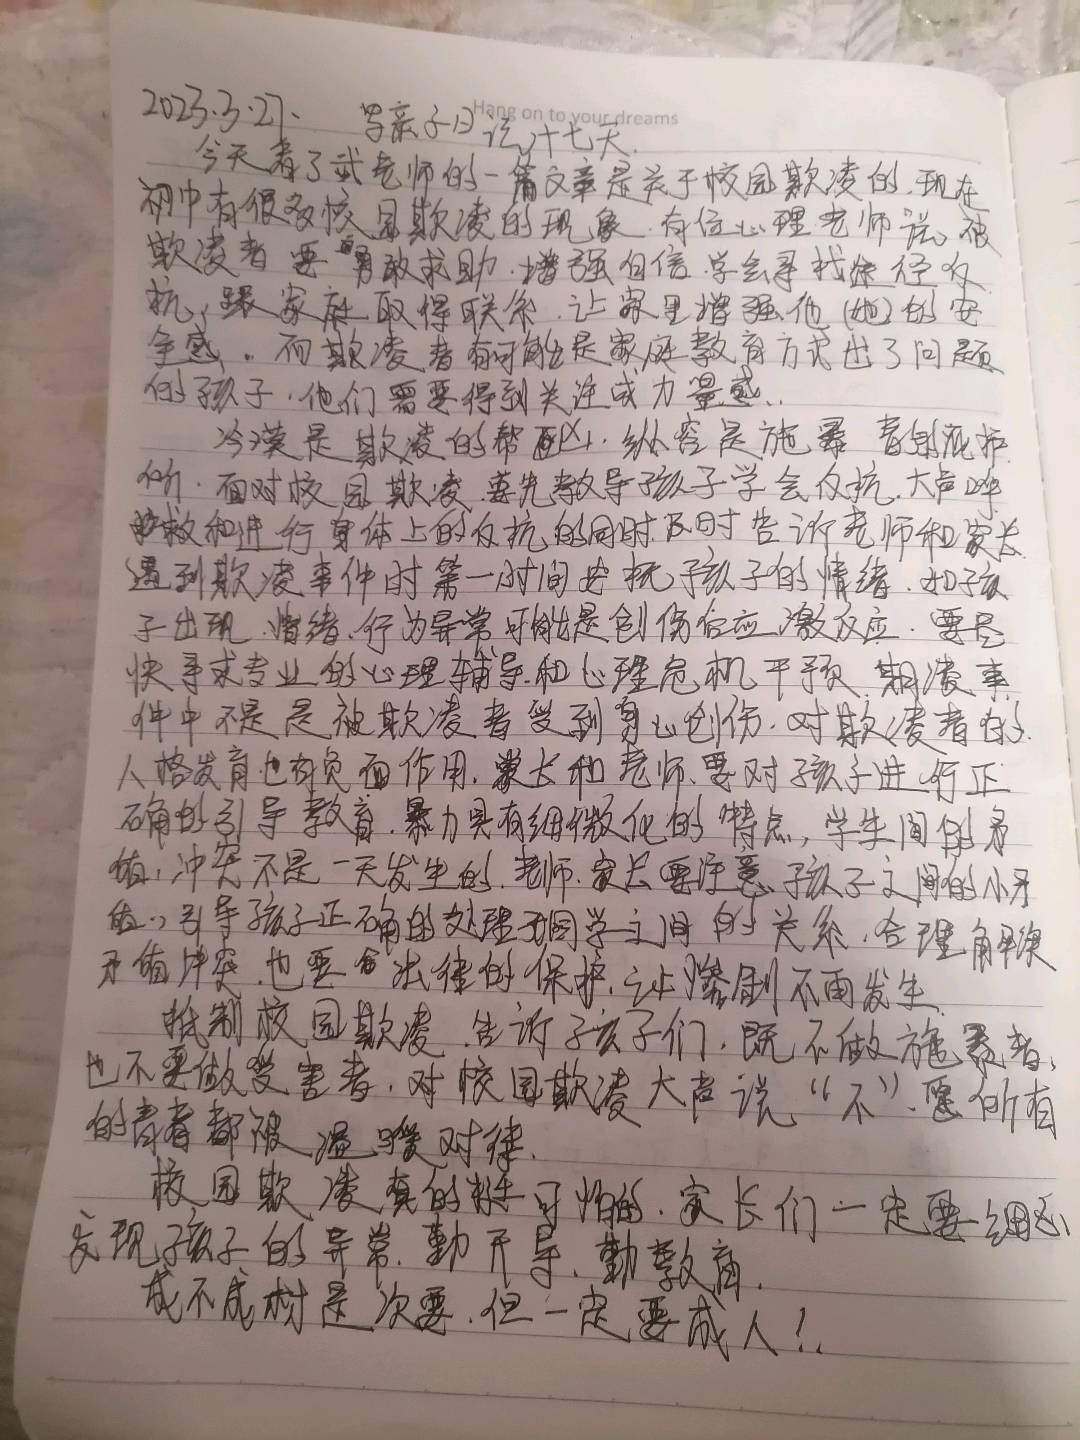 Hang on to your dreams
2023.3.27. 写亲子日记十七天.
今天看了武老师的一篇文章是关于校园欺凌的.现在
初中有很多校园欺凌的现象.有位心理老师说。被
欺凌者要勇敢求助.增强自信.学会寻找途径反
抗,跟家庭取得联系.让家里增强他(她)的安
全感。而欺凌者有可能是家庭教育方式出了问题
的孩子.他们需要得到关注或力量感.
冷漠是欺凌的帮凶.纵容是施暴者的庇护
所.面对校园欺凌.要先教导孩子学会反抗.大声呼
救和进行身体上的反抗的同时.及时告诉老师和家长.
遇到欺凌事件时第一时间安抚孩子的情绪.如孩
子出现.情绪.行为异常可能是创伤后应激反应.要尽
快寻求专业的心理辅导和心理危机干预.期凌事
件中不是是被欺凌者受到身心创伤.对欺凌者的.
人格发育也有负面作用.家长和老师.要对孩子进行正
确的引导教育.暴力具有细微化的特点,学生间的矛
值,冲突不是一天发生的.老师.家长要注意孩子之间的小矛
值,引导孩子正确的处理同学之间的关系.合理解决
矛值冲突.也要法律的保护.让惨剧不再发生
抵制校园欺凌.告诉孩子们.既不做施暴者,
也不要做受害者.对校园欺凌大声说"不".愿所有
的青春都被温暖对待.
校园欺凌真的挺可怕的.家长们一定要细心
发现孩子的异常.勤开导.勤教育.
成不成材是次要.但一定要成人!.